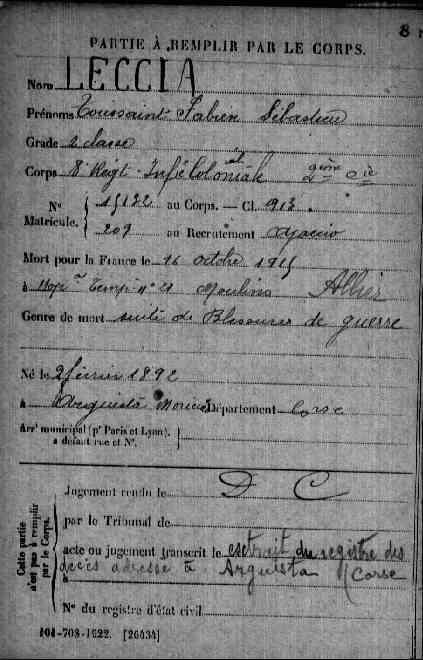 8
PARTIE À REMPLIR PAR LE CORPS.
Nom LECCIA
Prénoms Toussaint Fabien Sébastien
Grade 2 classe
Corps 8 Regt Infie Coloniale Cie
N° Matricule. { 15132 au Corps. — Cl. 913.
207 au Recrutement Ajaccio
Mort pour la France le 16 octobre 1915
à Hopal Tempre n° 21 Moulins Allier
Genre de mort suite de Blessures de guerre
Né le 2 février 1892
à Arguista Moriccio Département Corse
Arrt municipal (pr Paris et Lyon),
à défaut rue et N°.
Cette partie n'est pas à remplir par le Corps.
Jugement rendu le D C
par le Tribunal de
acte ou jugement transcrit le extrait du registre des
décès adressé à Arguista (Corse
à
N° du registre d'état civil
101-708-1922. [26434]